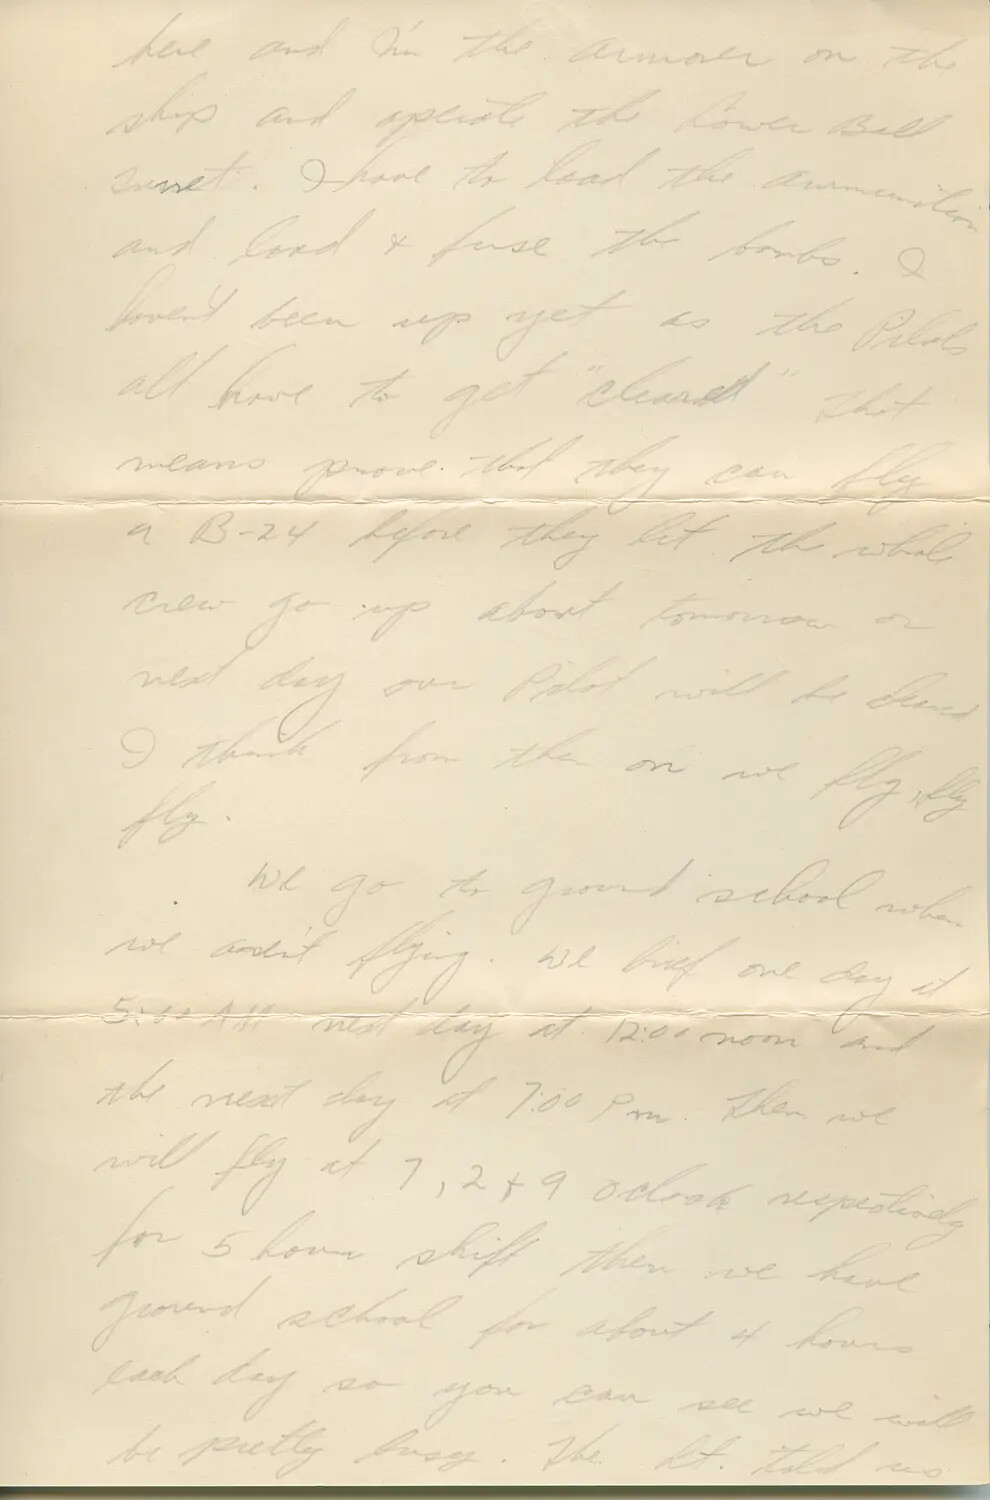 here and I'm the armorer on the
ship and operate the lower Ball
turret. I have to load the ammunition
and load & fuse the bombs. I
haven't been up yet as the Pilots
all have to get "cleared" that
means prove that they can fly
a B-24 before they let the whole
crew go up about tomorrow or
next day our Pilot will be cleared
I think from then on we fly, fly
fly.
We go to ground school when
we aren't flying. We brief one day at
5:00 AM next day at 12:00 noon and
the next day at 7:00 Pm. Then we
will fly at 7, 2 + 9 oclock respectively
for 5 hour shift then we have
ground school for about 4 hours
each day so you can see we will
be pretty busy. The Lt. told us